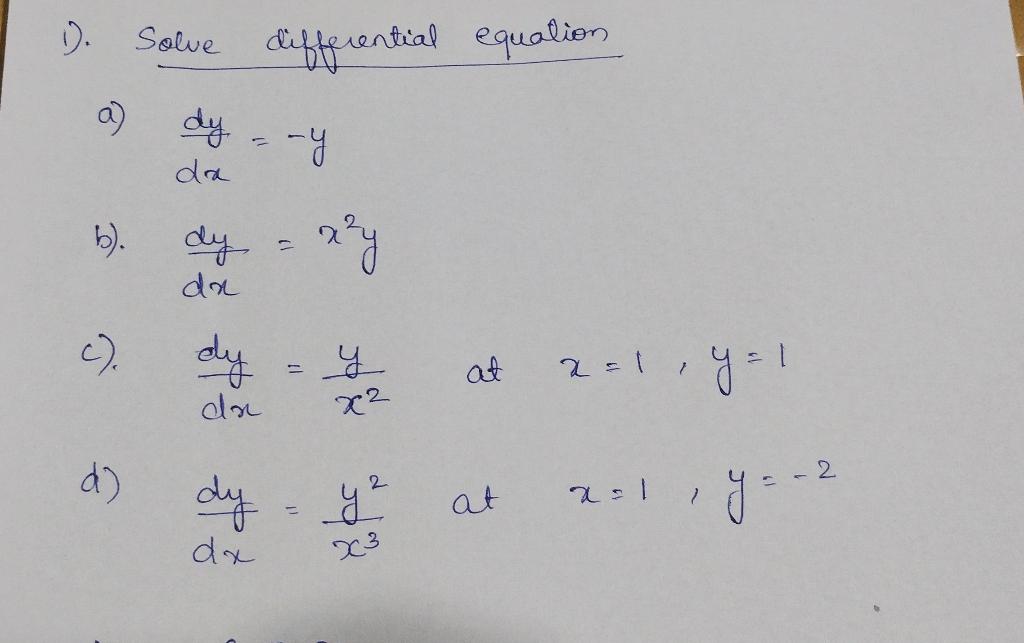 1). Solve differential equation
a) dy/dx = -y
b). dy/dx = x²y
c). dy/dx = y/x² at x=1, y=1
d) dy/dx = y²/x³ at x=1, y=-2